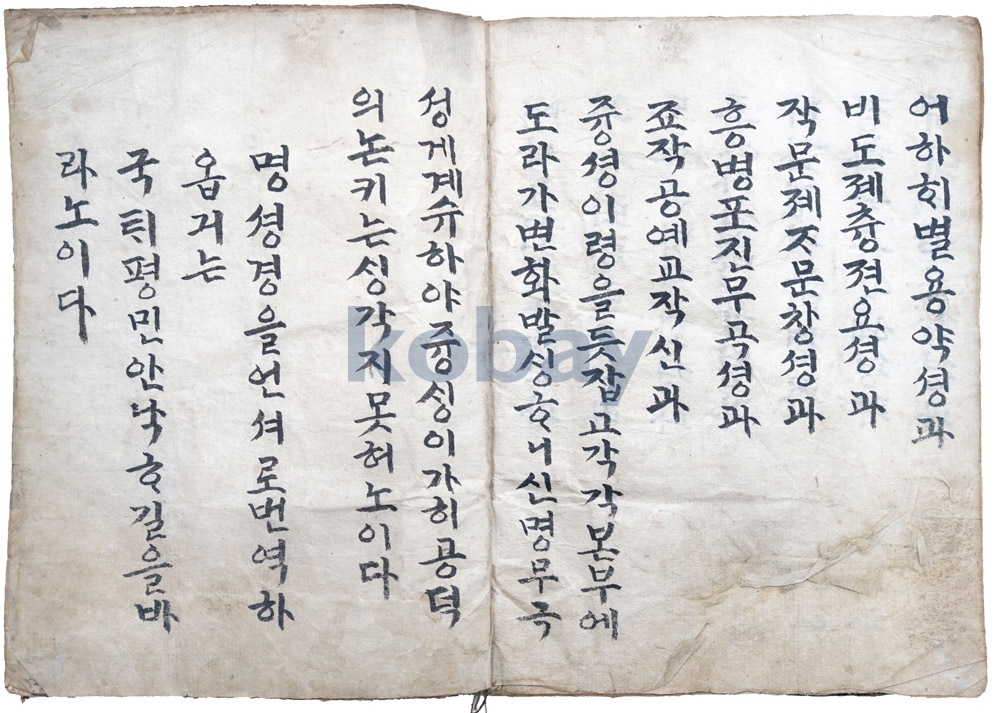 어하히별용약셩과
비도졔츙젼요셩과
작문졔즈문창셩과
흥병포진무곡셩과
죠작공예교작신과
즁셩이령을듯잡고각각본부에
도라가변화발싱ᄒᆞ니신명무극
성게계슈하야즁싱이가히공덕
의논키는싱각지못허노이다
명셩경을언셔로번역하
옴거는
국틱평민안낙ᄒᆞ길을바
라노이다
kobay